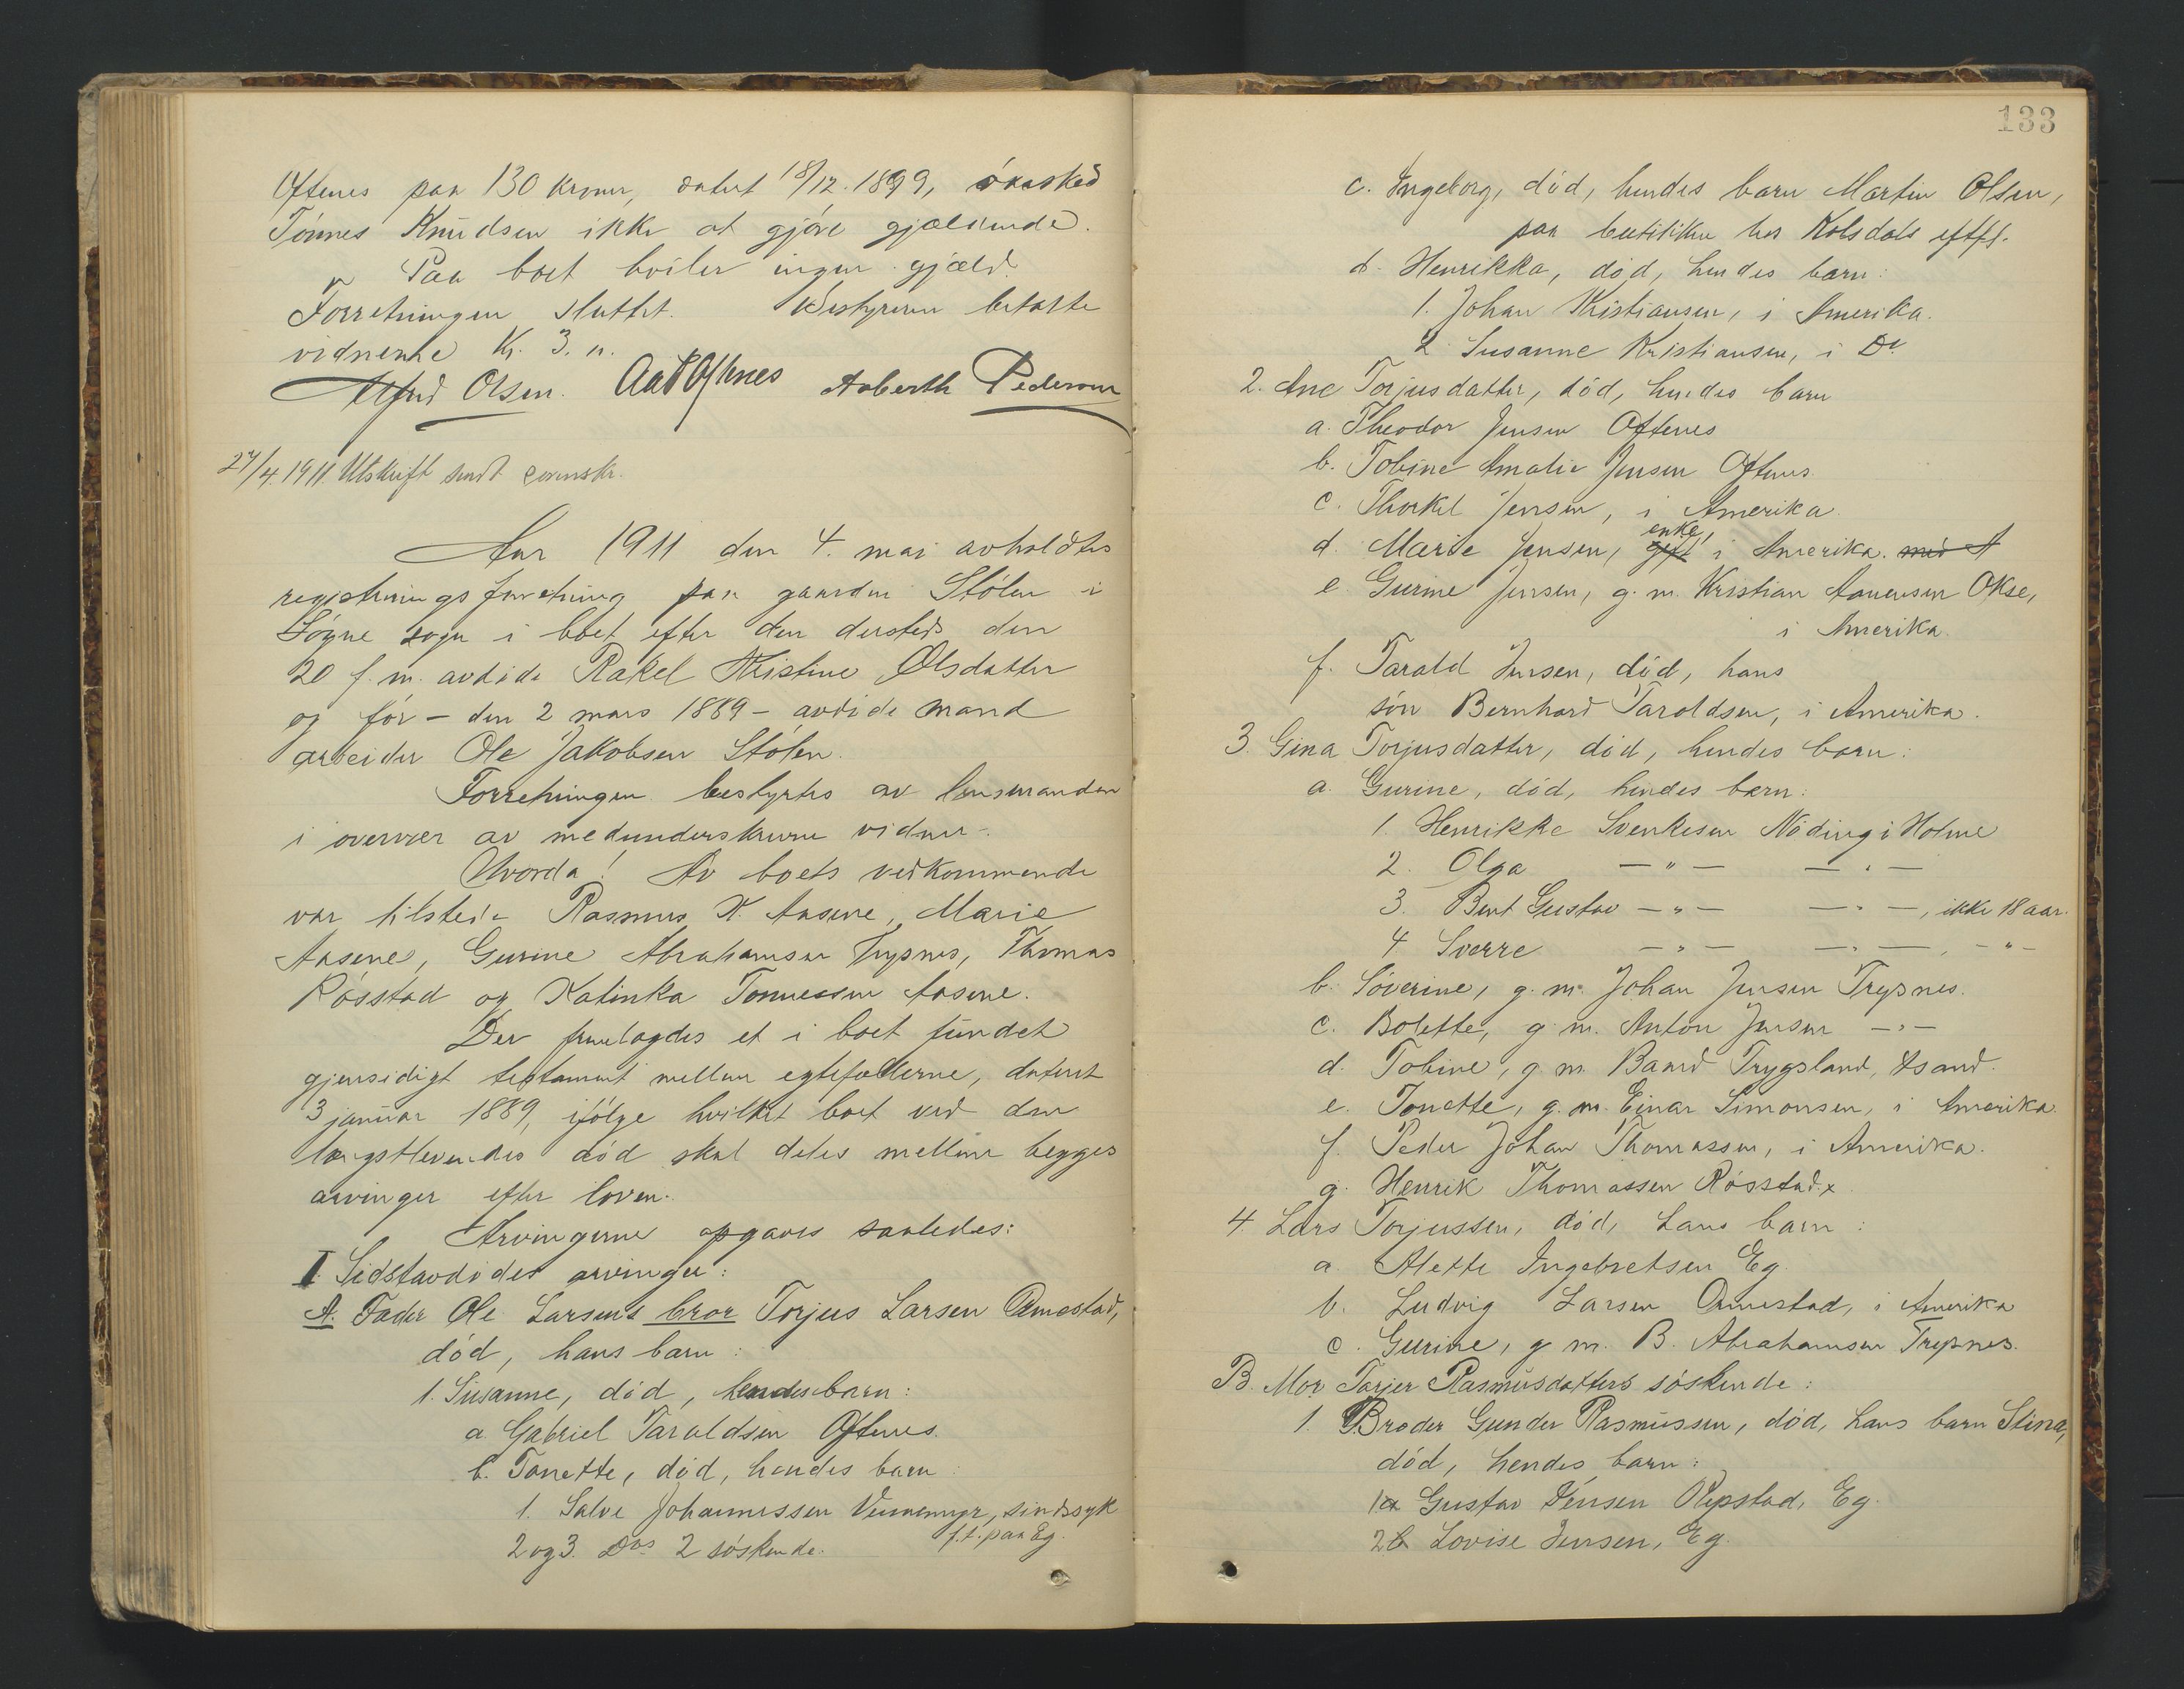 Oftenes paa 130 kroner, datert 18/12. 1899, ønsket
Tönnes Knudsen ikke at gjöre gjældende.
Paa boet hviler ingen gjæld.
Forretningen sluttet. Bestyreren betalte
vidnerne Kr. 3. n.
Alfred Olsen. Aad Oftenes Anberth Pedersen
27/4 1911 Utskrift sendt sorenskr.
Aar 1911 den 4. mai avholdtes
registreringsforretning paa gaarden Stölen i
Sögne sogn i boet efter den dersteds den
20 f. m. avdöde Rakel Kristine Olsdatter
og för – den 2 mars 1889 – avdöde mand
arbeider Ole Jakobsen Stölen.
Forretningen bestyrtes av lensmanden
i overvær av medunderskrevne vidner.
Hvorda! Av boets vedkommende
var tilstede Rasmus K. Aasene, Marie
Aasene, Gurine Abrahamsen Trysnes, Thomas
Rösstad og Katinka Tönnessen Aasene.
Der fremlagdes et i boet fundet
gjensidigt testament mellem egtefællerne, datert
3 januar 1889, ifölge hvilket boet ved den
længstlevendes död skal deles mellem begges
arvinger efter loven.
Arvingerne opgaves saaledes:
I. Sidstavdödes arvinger:
A. Fader Ole Larsens bror Torjus Larsen Omestad,
död, hans barn:
1. Susanne, död, hendes barn:
a. Gabriel Taraldsen Oftenes.
b. Tonette, död, hendes barn:
1. Salve Johannessen Vennemyr, sindssyk
f. t. paa Eg.
2 og 3. Dos 2 söskende.
133
c. Ingeborg, död, hendes barn Martin Olsen,
paa butikken hos Kolsdals eftfl.
d. Henrikka, död, hendes barn:
1. Johan Kristiansen, i Amerika.
2. Susanne Kristiansen, i Do
2. Ane Torjusdatter, död, hendes barn
a. Theodor Jensen Oftenes
b. Tobine Amalie Jensen Oftenes.
c. Thorkel Jensen, i Amerika.
enke,
d. Marie Jensen, gift i Amerika. med A
e. Gurine Jensen, g. m. Kristian Aanensen Okse,
i Amerika.
f. Tarald Jensen, död, hans
sön Bernhard Taraldsen, i Amerika.
3. Gina Torjusdatter, död, hendes barn:
a. Gurine, död, hendes barn:
1. Henrikke Svenkesen Nöding i Holme
2. Olga — " — — " —
3. Bent Gustav — " — — " —, ikke 18 aar.
4 Sverre — " — — " —, — " —
b. Söverine, g. m. Johan Jensen Trysnes.
c. Bolette, g. m. Anton Jensen — " —
d. Tobine, g. m. Baard Trygsland, Xsand.
e. Tonette, g. m. Einar Simonsen, i Amerika.
f. Peder Johan Thomassen, i Amerika.
g. Henrik Thomassen Rösstad. x
4. Lars Torjussen, död, hans barn:
a. Alette Ingebretsen Eg.
b. Ludvig Larsen Omestad, i Amerika
c. Gurine, g. m. B. Abrahamsen Trysnes.
B. Mor Tarjer Rasmusdatters söskende:
1. Broder Gunder Rasmussen, död, hans barn Stina,
död, hendes barn:
1a Gustav Jensen Repstad, Eg.
2b Lovise Jensen, Eg.